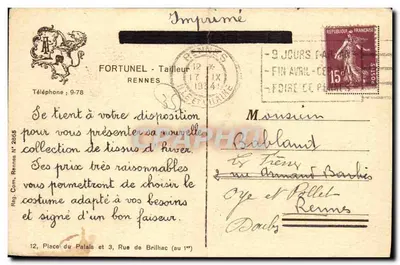 Imprimé
FORTUNEL - Tailleur
RENNES
Téléphone : 9-78
RENNES
12
17 IX
1934
ILLE-ET-VILAINE
9 JOURS
FIN AVRIL-
FOIRE DE
REPUBLIQUE FRANÇAISE
15c
POSTES
Se tient à votre disposition
pour vous présenter sa nouvelle
collection de tissus d'hiver.
Ses prix très raisonnables
vous permettront de choisir le
costume adapté à vos besoins
et signé d'un bon faiseur.
Reg. Com. Rennes Nº 2868
12, Place du Palais et 3, Rue de Brilhac (au 1er)
Monsieur
Babland
rue Armand Barbès
Oye et Pallet
Rennes
Doubs